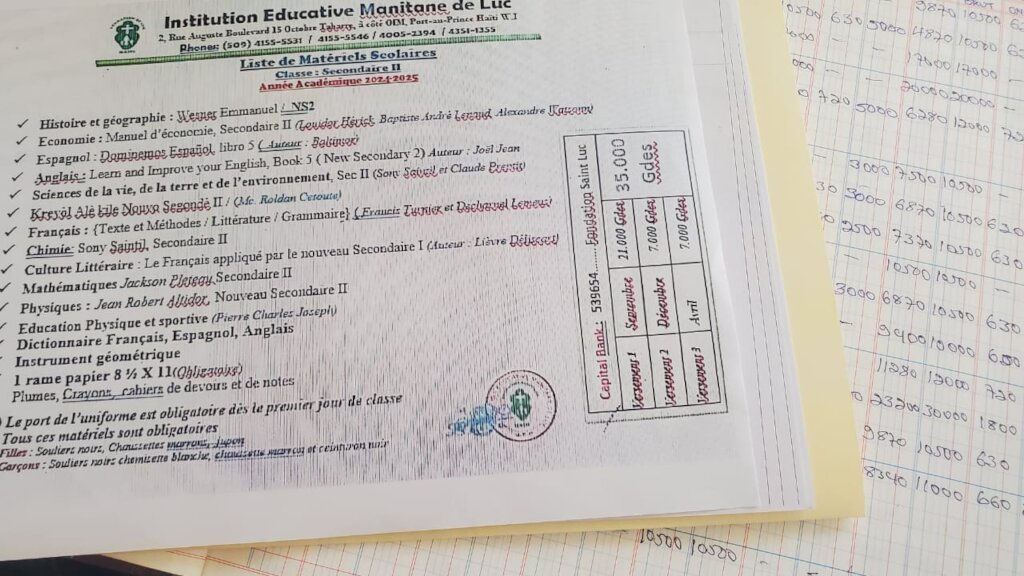 Institution Educative Manitane de Luc
2, Rue Auguste Boulevard 15 Octobre Tabarre, à côté ODM, Port-au-Prince Haïti W.I
Phones: (509) 4155-5531 / 4155-5546 / 4005-2394 / 4351-1355
Liste de Matériels Scolaires
Classe : Secondaire II
Année Académique 2024-2025
✓ Histoire et géographie : Werner Emmanuel / NS2
✓ Economie : Manuel d'économie, Secondaire II ( Hérick Baptiste André Alexandre
✓ Espagnol : Dominemos Español, libro 5 ( Auteur :
✓ Anglais : Learn and Improve your English, Book 5 ( New Secondary 2) Auteur : Joël Jean
✓ Sciences de la vie, de la terre et de l'environnement, Sec II (Sony et Claude
✓ Kreyòl Segondè II / (Mc. Roldan
✓ Français : {Texte et Méthodes / Littérature / Grammaire} ( Francis et
✓ Chimie: Sony Saintil, Secondaire II
✓ Culture Littéraire : Le Français appliqué par le nouveau Secondaire I (Auteur : Lièvre
✓ Mathématiques Jackson Secondaire II
✓ Physiques : Jean Robert Alidor, Nouveau Secondaire II
✓ Education Physique et sportive (Pierre Charles Joseph)
✓ Dictionnaire Français, Espagnol, Anglais
✓ Instrument géométrique
1 rame papier 8 ½ X 11(Obligatoire)
Plumes, Crayons, cahiers de devours et de notes
) Le port de l'uniforme est obligatoire dès le premier jour de classe
Tous ces matériels sont obligatoires
Filles : Souliers noirs, Chaussettes marrons, Jupon
Garçons : Souliers noirs chemisette blanche, chaussette marron et ceinturon nuir
Capital Bank : 539654......... Fondation Saint Luc
Versement 1 Septembre 21.000 Gdes 35.000 Gdes
Versement 2 Décembre 7.000 Gdes
Versement 3 Avril 7.000 Gdes
9870 10500
10500 630 5000 4870 10500
— — 17000 17000 —
— —
720 5000 6280 12000
— 3000 7500 10500 —
3000 6870 10500 630
2500 7370 10500 630
— 10500 10500 —
3000 6870 10500 630
— 9400 10000
11280 12000 720
23200 30000 1800
9870 10500 630
8340 11000 660
— 10500 10500 —